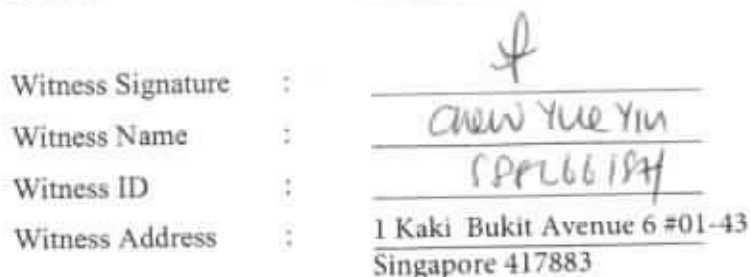 Witness Signature :
Witness Name : Chew Yue Yin
Witness ID :
Witness Address : 1 Kaki Bukit Avenue 6 #01-43
Singapore 417883